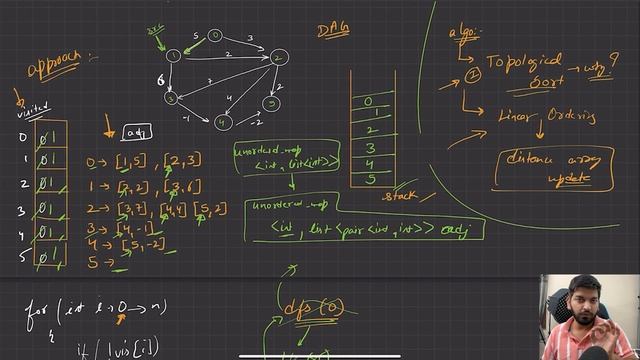 approach :-
visited
0 0 1
1 0 1
2 0 1
3 0 1
4 0 1
5 0 1
adj
0 → [1,5] , [2,3]
1 → [2,2] , [3,6]
2 → [3,7] , [4,4] [5,2]
3 → [4,-1]
4 → [5,-2]
5 →
for (int i=0 → n)
{
if (!vis[i])
src
5
0
3
1
2
2
6
7
4
2
3
-1
4
-2
5
DAG
unordered_map
<int, list<int>>
unordered_map
<int, list <pair <int, int>>> adj
0
1
2
3
4
5
stack
dfs (0)
algo:-
1
Topological
Sort → why?
Linear Ordering
distance array
update